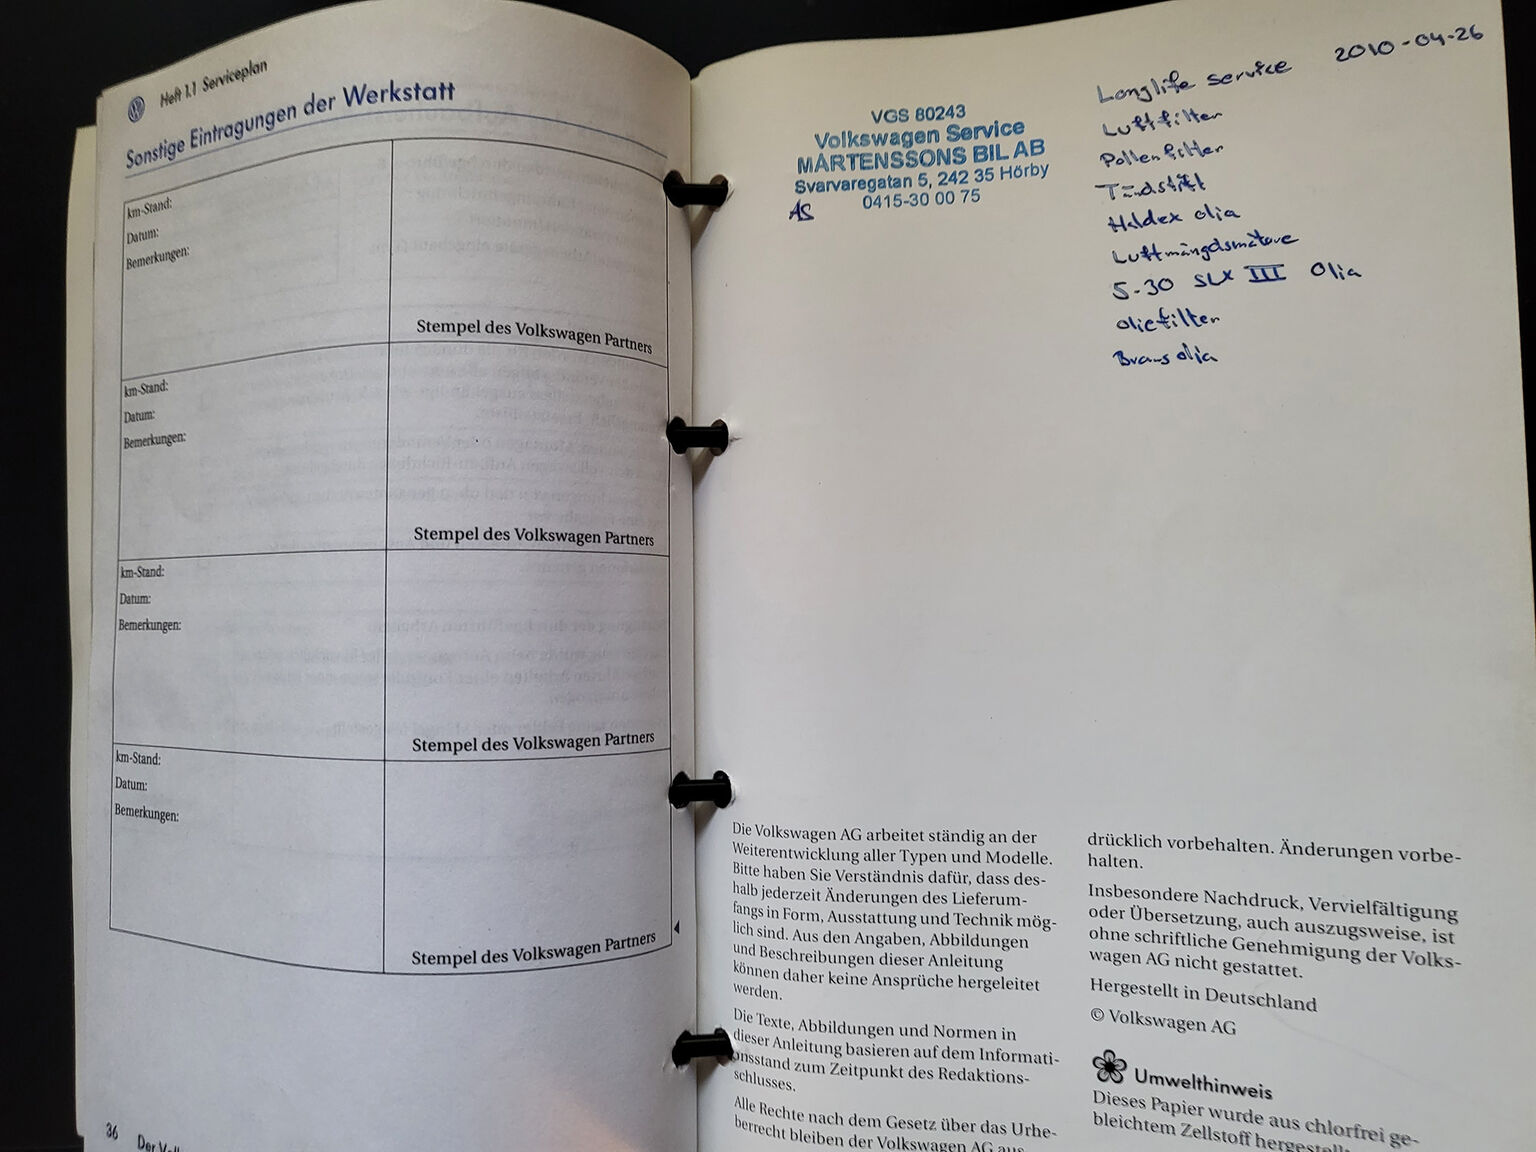 Heft 1.1 Serviceplan
Sonstige Eintragungen der Werkstatt
km-Stand:
Datum:
Bemerkungen:
Stempel des Volkswagen Partners
km-Stand:
Datum:
Bemerkungen:
Stempel des Volkswagen Partners
km-Stand:
Datum:
Bemerkungen:
Stempel des Volkswagen Partners
km-Stand:
Datum:
Bemerkungen:
Stempel des Volkswagen Partners
36
VGS 80243
Volkswagen Service
MÅRTENSSONS BIL AB
Svarvaregatan 5, 242 35 Hörby
0415-30 00 75
AS
Longlife service 2010-04-26
Luftfilter
Pollenfilter
Tändstift
Haldex olia
Luftmängdsmätare
5-30 SLX III Olia
oliefilter
Broms olia
Die Volkswagen AG arbeitet ständig an der
Weiterentwicklung aller Typen und Modelle.
Bitte haben Sie Verständnis dafür, dass des-
halb jederzeit Änderungen des Lieferum-
fangs in Form, Ausstattung und Technik mög-
lich sind. Aus den Angaben, Abbildungen
und Beschreibungen dieser Anleitung
können daher keine Ansprüche hergeleitet
werden.
Die Texte, Abbildungen und Normen in
dieser Anleitung basieren auf dem Informati-
onsstand zum Zeitpunkt des Redaktions-
schlusses.
Alle Rechte nach dem Gesetz über das Urhe-
berrecht bleiben der Volkswagen AG aus-
drücklich vorbehalten. Änderungen vorbe-
halten.
Insbesondere Nachdruck, Vervielfältigung
oder Übersetzung, auch auszugsweise, ist
ohne schriftliche Genehmigung der Volks-
wagen AG nicht gestattet.
Hergestellt in Deutschland
© Volkswagen AG
Umwelthinweis
Dieses Papier wurde aus chlorfrei ge-
bleichtem Zellstoff hergestellt